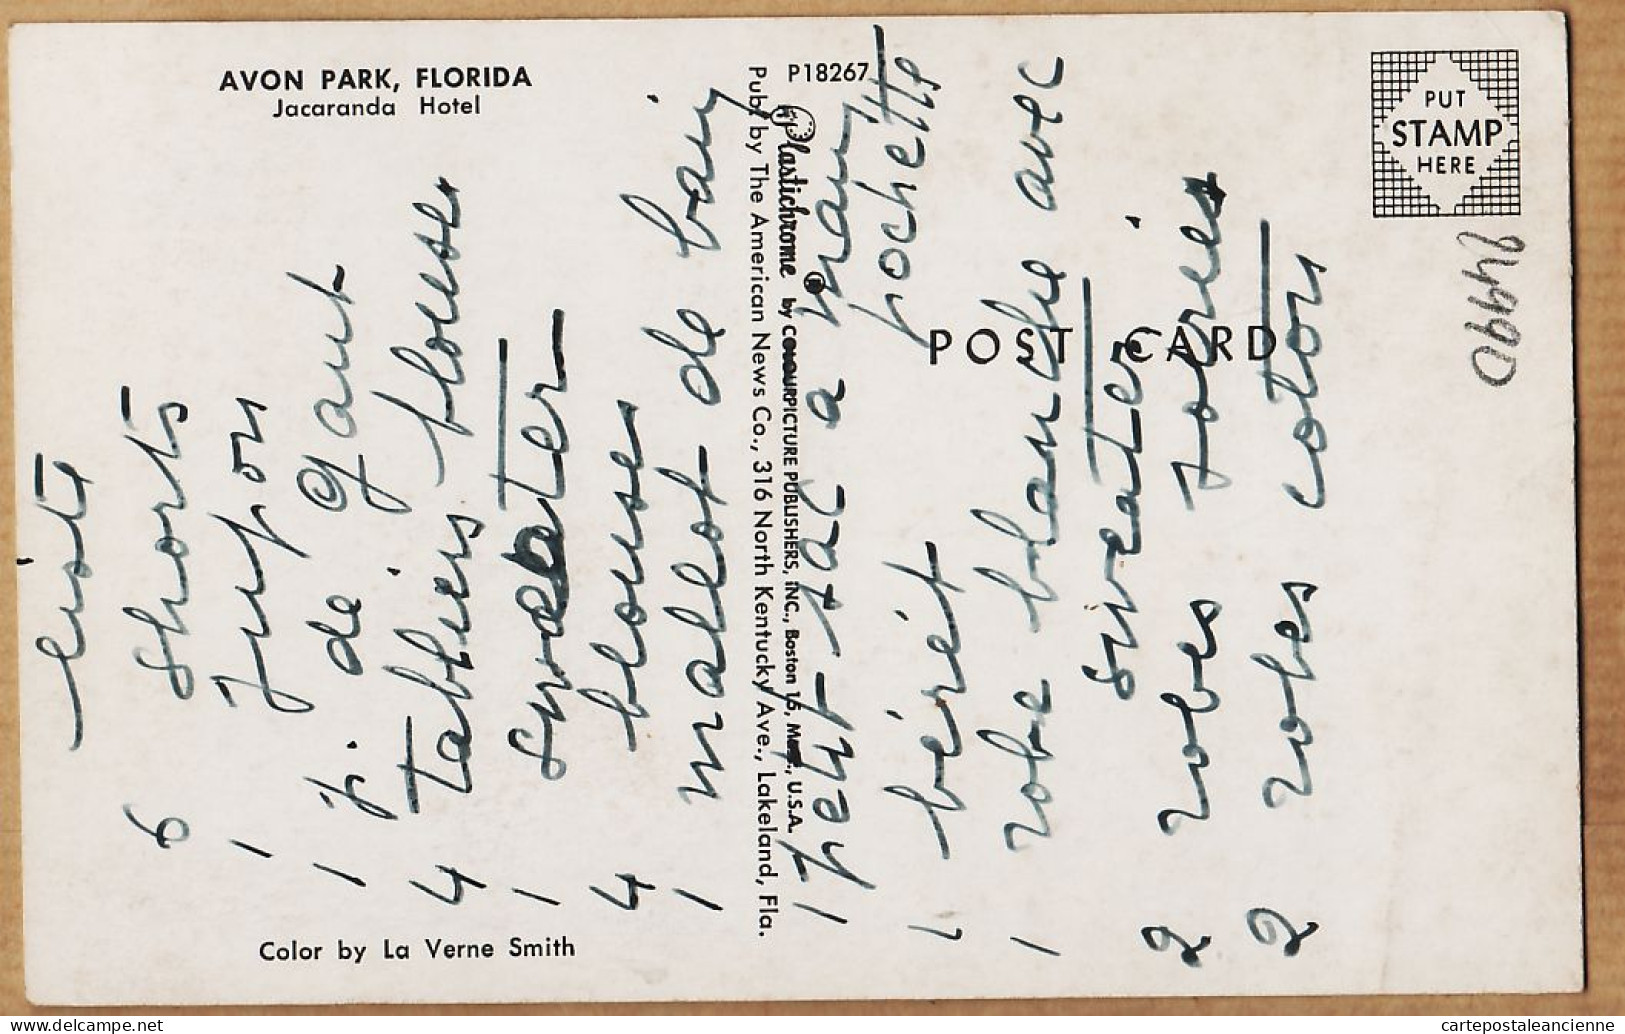 AVON PARK, FLORIDA
Jacaranda Hotel
Color by La Verne Smith
P18267
Plastichrome ® by COLOURPICTURE PUBLISHERS, INC., Boston 15, Mass., U.S.A.
Pub. by The American News Co., 316 North Kentucky Ave., Lakeland, Fla.
POST CARD
PUT
STAMP
HERE
liste
6 shorts
1 jupon
1 p. de gant
4 tabliers blouses
1 sweater
4 blouses
1 maillot de bain
1 petit sac a main
pochette
1 béret
1 robe blanche avec
sweater
2 robes
2 robes coton
cartepostaleancienne
cartepostaleancienne.com